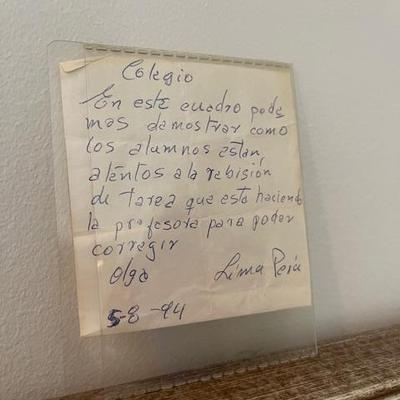 Colegio
En este cuadro pode
mos demostrar como
los alumnos estan
aténtos a la rebisión
de tarea que esta haciendo
la profesora para poder
corregir
Olga Lima Perú
5-8-94